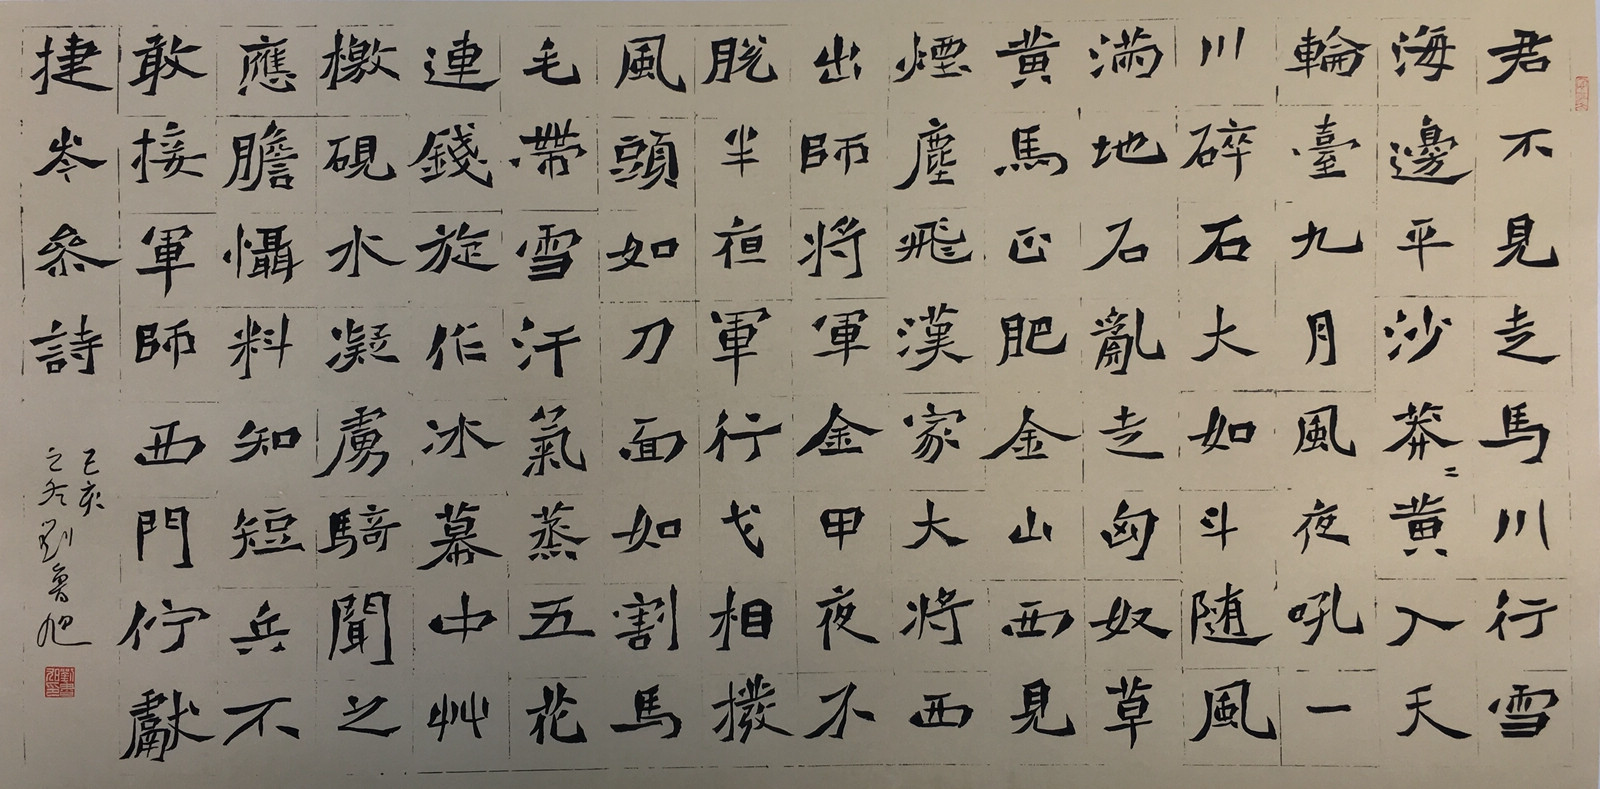 君不見走馬川行雪
海邊平沙莽〻黃入天
輪臺九月風夜吼一
川碎石大如斗随風
滿地石亂走匈奴草
黃馬正肥金山西見
煙塵飛漢家大將西
出師將軍金甲夜不
脫半亱軍行戈相撥
風頭如刀面如割馬
毛帶雪汗氣蒸五花
連錢旋作冰幕中艸
檄硯水凝虜騎聞之
應膽懾料知短兵不
敢接軍師西門佇獻
捷岑參詩
己亥
之冬劉魯旭